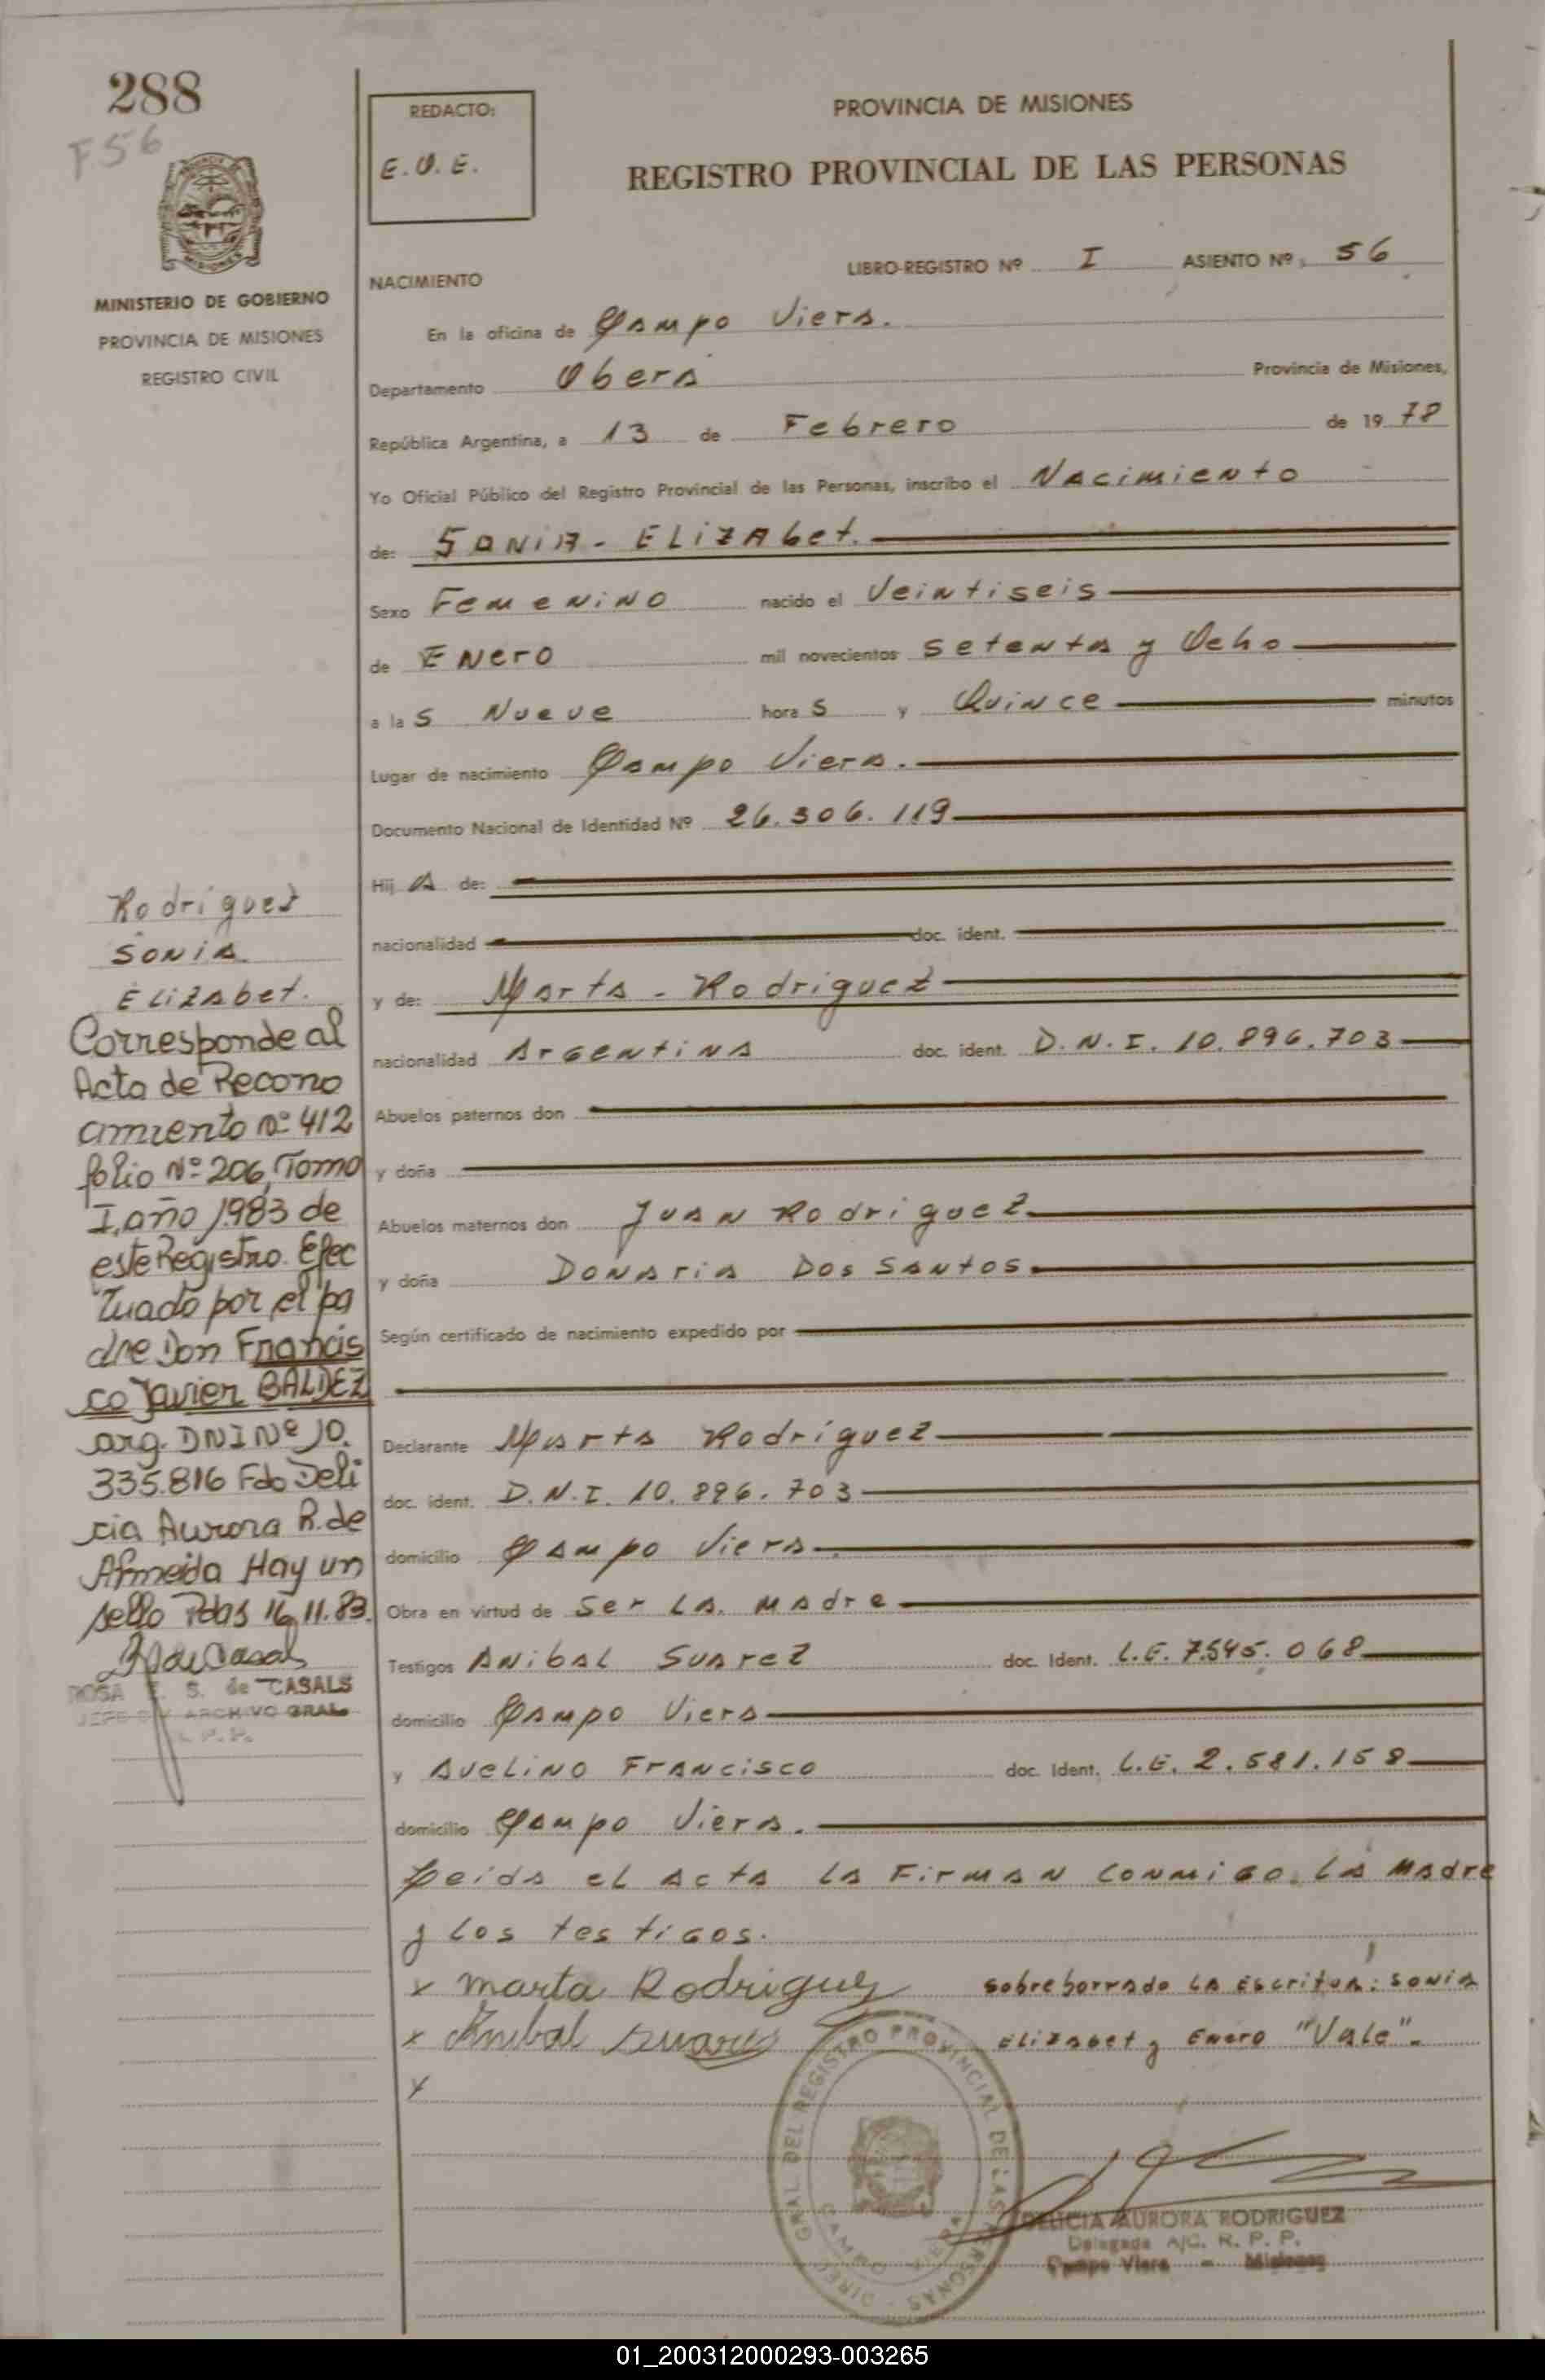 288
F56
MINISTERIO DE GOBIERNO
PROVINCIA DE MISIONES
REGISTRO CIVIL
REDACTO:
E.O.E.
PROVINCIA DE MISIONES
REGISTRO PROVINCIAL DE LAS PERSONAS
LIBRO-REGISTRO Nº I ASIENTO Nº 56
NACIMIENTO
En la oficina de Campo Viera.
Departamento Obera Provincia de Misiones,
República Argentina, a 13 de Febrero de 1978
Yo Oficial Público del Registro Provincial de las Personas, inscribo el Nacimiento
de: SONIA - ELIZABET.
Sexo Femenino nacido el Veintiseis
de Enero mil novecientos setenta y Ocho
a las Nueve horas y Quince minutos
Lugar de nacimiento Campo Viera.
Documento Nacional de Identidad Nº 26.306.119
Hija de:
nacionalidad doc. ident.
y de: Marta - Rodriguez
nacionalidad Argentina doc. ident. D.N.I. 10.896.703
Abuelos paternos don
y doña
Abuelos maternos don Juan Rodriguez
y doña Donaria Dos Santos
Según certificado de nacimiento expedido por
Declarante Marta Rodriguez
doc. ident. D.N.I. 10.896.703
domicilio Campo Viera
Obra en virtud de Ser La Madre
Testigos Anibal Suarez doc. Ident. L.E. 7.545.068
domicilio Campo Viera
y Avelino Francisco doc. Ident. L.E. 2.581.158
domicilio Campo Viera.
Leida el acta la Firman conmigo, la Madre
y los testigos.
x Marta Rodriguez
x Anibal Suarez
x
sobreborrado la escritura: Sonia
Elizabet y Enero "Vale".
DIREC. GRAL. DEL REGISTRO PROVINCIAL DE LAS PERSONAS
CAMPO VIERA
DELICIA AURORA RODRIGUEZ
Delegada A/C. R. P. P.
Campo Viera - Misiones
Rodriguez
Sonia
Elizabet.
Corresponde al
Acta de Recono
amiento nº 412
folio Nº 206, Tomo
I, año 1983 de
este Registro. Efec
tuado por el pa
dre Don Francis
co Javier BALDEZ
arg. DNI Nº 10.
335.816 Fdo Deli
cia Aurora R. de
Almeida Hay un
sello Pdas 16.11.83.
ROSA E. S. de CASALS
JEFE DIV ARCHIVO GRAL
R. P. P.
01_200312000293-003265